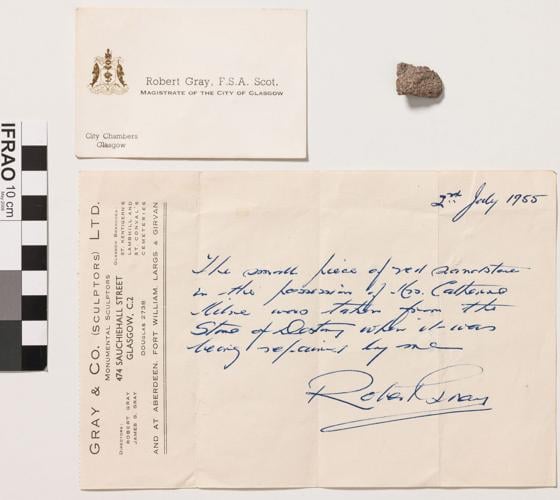 Robert Gray, F.S.A. Scot.
Magistrate of the City of Glasgow
City Chambers
Glasgow
IFRAO 10 cm
GRAY & CO. (SCULPTORS) LTD.
MONUMENTAL SCULPTORS
474 SAUCHIEHALL STREET
GLASGOW, C.2
DIRECTORS:
ROBERT GRAY
JAMES G. GRAY
GLASGOW BRANCHES:
ST. KENTIGERN'S
LAMBHILL AND
ST. CONVAL'S
CEMETERIES
DOUGLAS 2738
AND AT ABERDEEN, FORT WILLIAM, LARGS & GIRVAN
2nd July 1955
The small piece of red sandstone
in the possession of Mrs. Catherine
Milne was taken from the
Stone of Destiny when it was
being repaired by me
Robert Gray